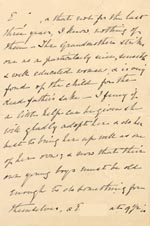 a that role for the last
three years, I know nothing of
them. The Grandmother strikes
one as a particularly nice, sensible
& well educated woman, & is very
fond of the child for the
dead father's sake. I fancy if
a little help can be given she
will gladly adopt her & do her
best to bring her up well as one
of her own, & was that there
are young boys must be old
enough to do something for
themselves,